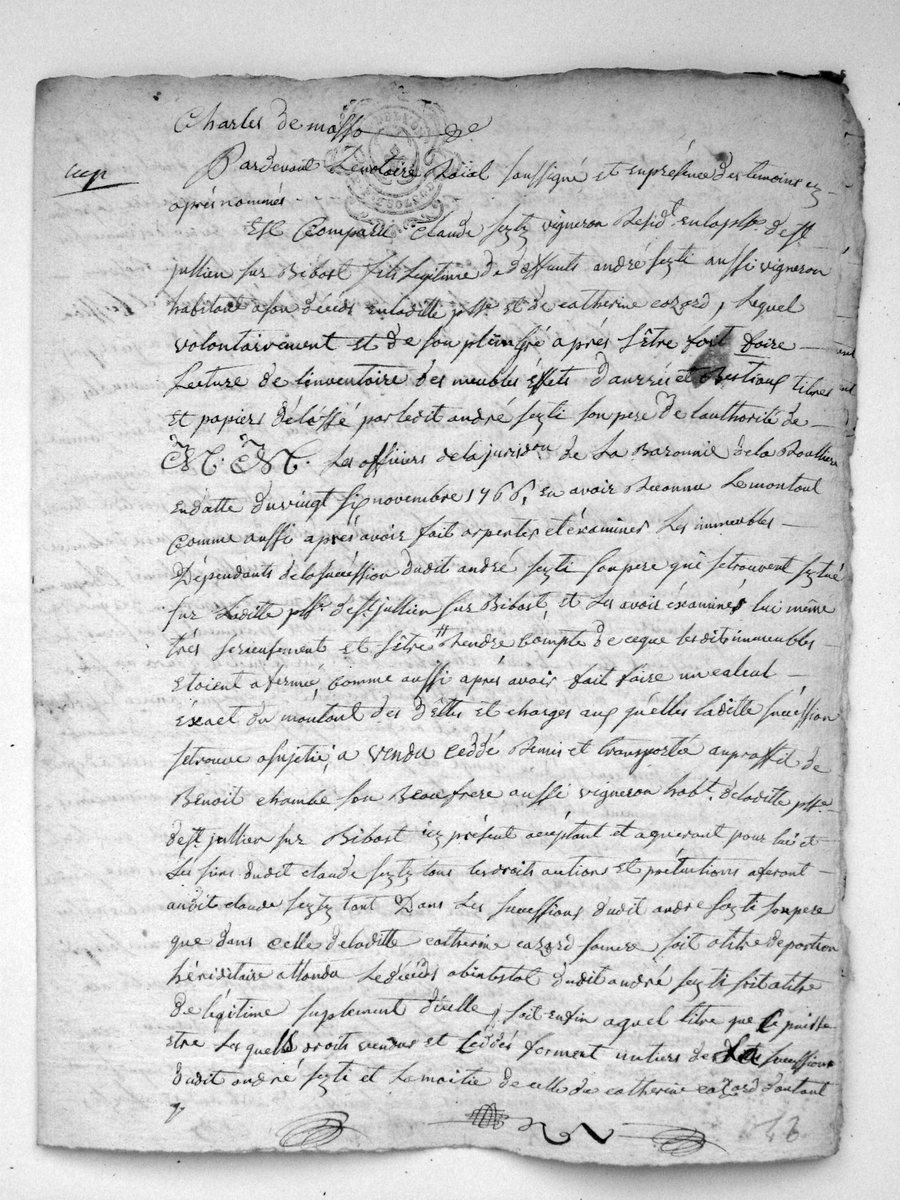 Charles de masso de
Pardevant Lenotaire Roial soussigné et enprésence des temoins cy
aprés nommés
Est Comparu Claude feyty vigneron Resid.t en la p.sse de s.t
jullien sur Bibost fils legitime de deffunts andré feyti aussi vigneron
habitant a son décéds en laditte p.sse et de catherine cozord, lequel
volontairement et de son plein gré aprés s'être fait faire
Lecture de l'inventaire des meubles éffets danrrés et Bestiaux titres
Et papiers délaissé par ledit andré feyti son pere de l'authorité de
M. M. Les officiers de la jurisd.on de La Baronnie de la
En datte du vingt six novembre 1766, en avoir Reconnu Le montant
Comme aussi aprés avoir fait arpenter et éxaminer Les immeubles
Dépendants de la succéssion dudit andré feyti son pere qui se trouvent sytué
sur Laditte p.sse de s.t jullien sur Bibost, et Les avoir éxaminés lui même
trés serieusement et s'être Rendre Compte de ceque lesdits immeubles
etoient afermé, comme aussi aprés avoir fait faire un calcul
éxact du montant des déttes et charges aux quélles laditte succéssion
se trouve asujetie, a vendu ceddé Remis et transportée au proffit de
Benoit chambe son Beaufrere aussi vigneron hab.t de laditte p.sse
de s.t jullien sur Bibost icy présent acceptant et aquerant pour lui et
Les siens dudit claude feyty tous les droits actions et prétentions aferant
audit claude feyty tant Dans Les succéssions dudit andre feyti son pere
que dans celle de laditte catherine cozord sa mere soit a titre de portion
héréditaire attendu Le décéds abintestat dudit andré feyti soit a titre
de légitime suplement d'icelle, soit enfin a quel titre que ce puisse
etre Les quells droits vendus et ceddés forment un tiers de La succéssion
dudit andré feyti et La moitie de celle de catherine cozord d'autant